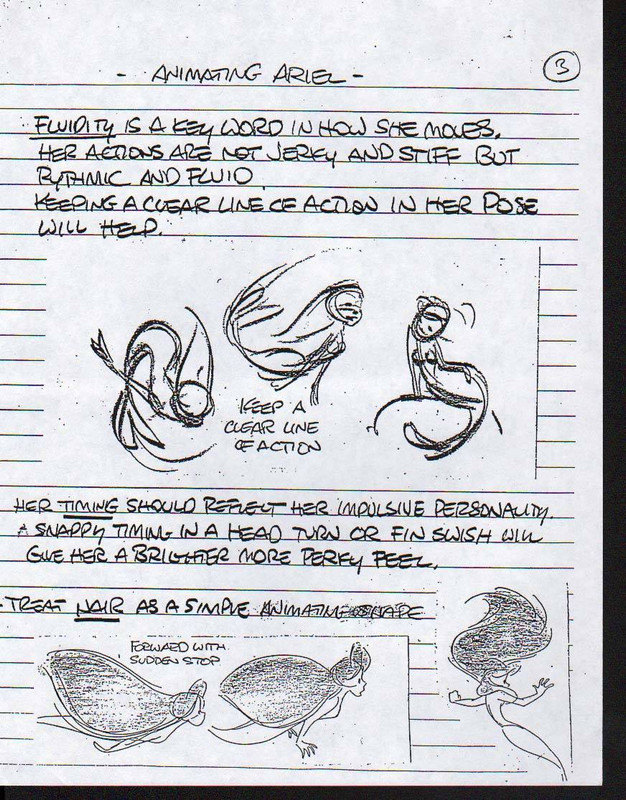 - ANIMATING ARIEL -
3
FLUIDITY IS A KEY WORD IN HOW SHE MOVES.
HER ACTIONS ARE NOT JERKY AND STIFF BUT
RYTHMIC AND FLUID.
KEEPING A CLEAR LINE OF ACTION IN HER POSE
WILL HELP.
KEEP A
CLEAR LINE
OF ACTION
HER TIMING SHOULD REFLECT HER IMPULSIVE PERSONALITY.
A SNAPPY TIMING IN A HEAD TURN OR FIN SWISH WILL
GIVE HER A BRIGHTER MORE PERKY FEEL.
- TREAT HAIR AS A SIMPLE ANIMATING SHAPE
FORWARD WITH
SUDDEN STOP